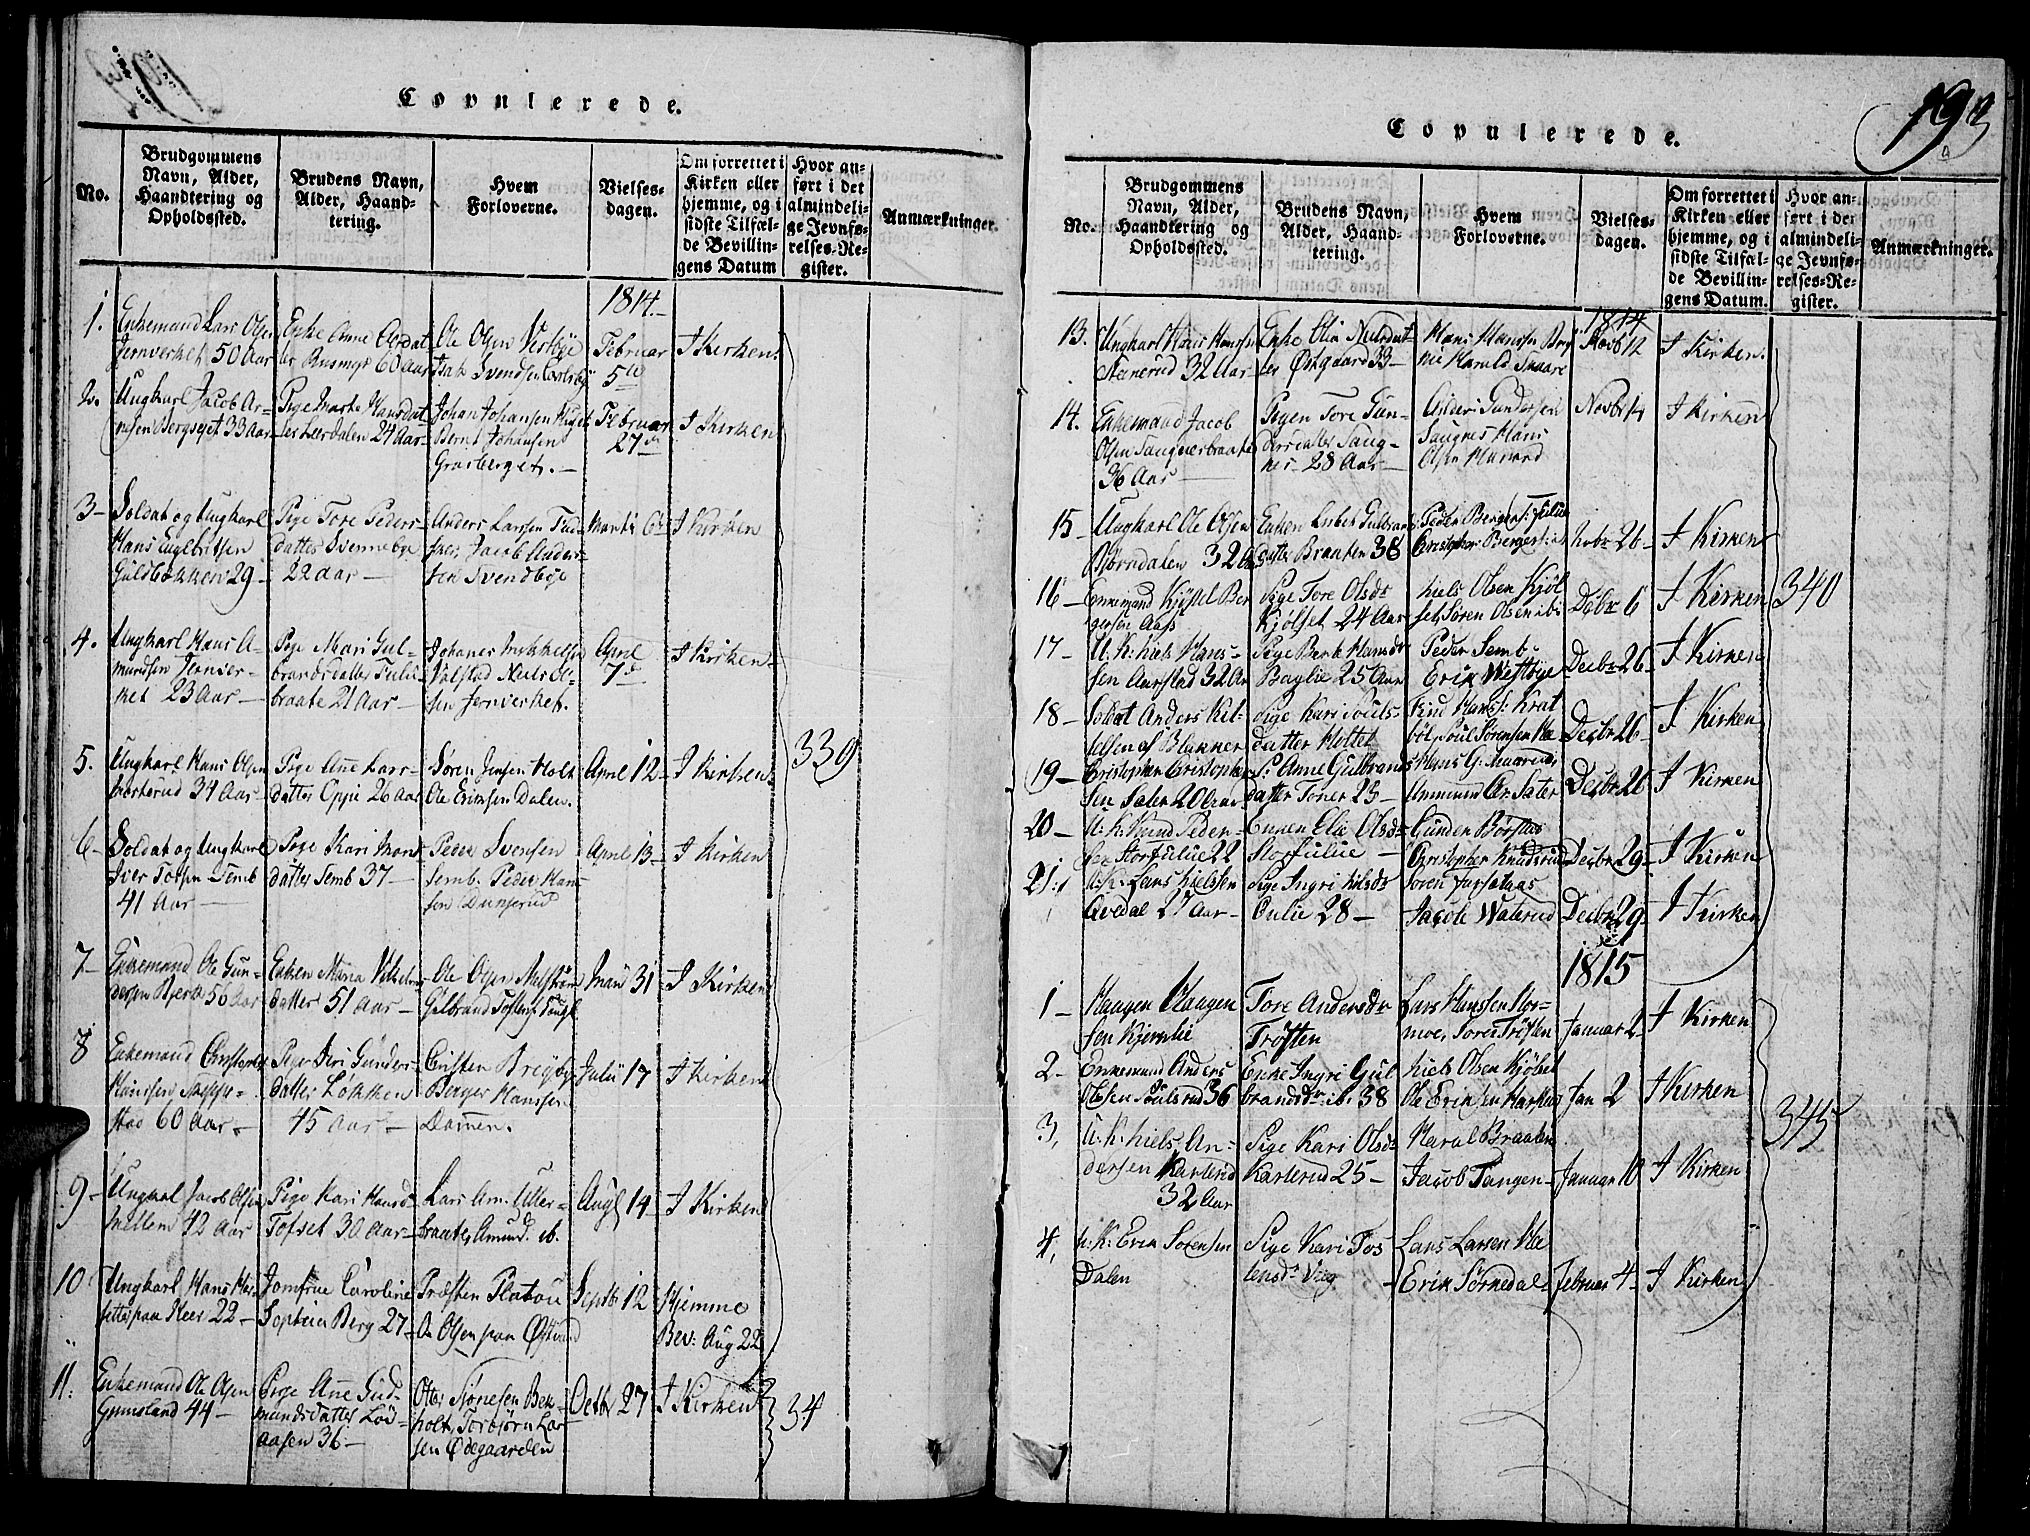 Copulerede.
No.
Brudgommens
Navn, Alder,
Haandtering og
Opholdssted.
Brudens Navn,
Alder, Haand-
tering.
Hvem
Forloverne.
Vielses-
dagen.
Om forrettet i
Kirken eller
hjemme, og i
sidste Tilfæl-
de Bevillin-
gens Datum
Hvor an-
ført i det
almindeli-
ge Jevnfø-
relses-Re-
gister.
Anmærkninger.
1814
1.
Enkemand Lars Olsen
Jernverket 50 Aar
Enke Anne
60 Aar
Ole Olsen
Isak Svendsen
Februar
5te
I Kirken.
2.
Ungkarl Jacob Ar-
nesen Bergseget 33 Aar
Pige Marte Hansdat
ter Leerdalen 24 Aar
Johan Johansen
Bernt Johansen
Grasberget.
Februar
27de
I Kirken
3
Soldat og Ungkarl
Hans Englbritsen
Guldbækken 29
Pige Tore Peders
datter Svennebye
22 aar
Anders Larsen
Jacob Anders
sen Svendbye
Marti 6te
I Kirken
4.
Ungkarl Hans A-
mundsen Jernver-
ket 23 Aar
Pige Mari Gul-
brandsdatter Fulu-
braate 21 Aar
Johanes Mikkelsen
Valstad Niels Ol-
sen Jernverket.
April
7de
I Kirken
5.
Ungkarl Hans Olsen
34 Aar
Pige Ane Lars-
datter Opsu 26 aar
Søren Jensen Holt
Ole Ericksen Dalen.
April 12
I Kirken
339
6
Soldat og Ungkarl
Iver Torsen Semb
41 Aar
Pige Kari Hans
datter Semb 37
Peder Svensen
Semb. Peder Han-
sen Dunserud
April 13
I Kirken
7
Enkemand Ole Gun-
dersen Bjerke 56 Aar
Enken Maria Vilhelms
datter 51 aar
Ole Olsen
Gulbrand
Maii 31
I Kirken
8
Enkemand Christopher
Hanssen
stad 60 Aar
Pige Siri Gunders-
datter Løkken
45 Aar
Cristen Bregsby
Berger Hanssen
Damen.
Julii 17
I Kirken
9
Ungkarl Jacob Olsen
Mellem 42 Aar
Pige Kari Hansd
Tofset 30 Aar
Lars Am: Uller-
braaten Amund. ib.
Augt 14
I Kirken
10
Ungkarl Hans
paa Heer 22
Jomfrue Caroline
Sophia Berg 27
Præsten Platou
Ole Olsen paa Østvand
Septb 12
Hjemme
Bev: Aug 22
11.
Enkemand Ole Olsen
Grinsland 44
Pige Ane Gud-
mundsdatter Lød-
aasen 36
Otter Sjonesen Bek-
holt, Torbjørn Lar-
sen Ødegaarden
Octbr 27
I Kirken
34
Copulerede.
193
No.
Brudgommens
Navn, Alder,
Haandtering og
Opholdssted.
Brudens Navn,
Alder, Haand-
tering.
Hvem
Forloverne.
Vielses-
dagen.
Om forrettet i
Kirken eller
hjemme, og i
sidste Tilfæl-
de Bevillin-
gens Datum.
Hvor an-
ført i det
almindeli-
ge Jevnfø-
relses-Re-
gister.
Anmærkninger.
1814
13.
Ungkarl Hans Hansen
Steinerud 32 Aar
Enke Olia Nielsdat
ter Østgaard 33
Hans Hansen
Harald Snaare
Novb 12
I Kirken.
14.
Enkemand Jacob
Olsen Saugnesbraaten
36 Aar
Pigen Tore Gun-
dersdatter Saug-
nes 28 Aar
Anders Gundersen
Saugnes Hans
Olsen
Novbr 14
I Kirken
15
Ungkarl Ole Olsen
Bjørndalen 32 Aar
Enken Lisbet
Braaten 38
Peder Bergers: Fulue
Christopher Bergers: ib
Nobr 26
I Kirken
16
Enkemand Kjøstel Ber
gersen Aass
Pige Tore Olsdr
Kjølset 24 Aar
Niels Olsen Kjøl
set, Søren Olsen ibi
Debr 6
I Kirken
340
17
U. K: Niels Hans-
sen Aarstad 32 Aar
Pige Berte Hansdr
Baglie 25 Aar
Peder Semb
Erik Westbye
Decbr 26
I Kirken
18
Soldat Anders Kit-
telsen af Blakker
Pige Kari Pouls-
datter Hottet
Find Hans: Krat
bøl, Poul Sørensen Hee
Decbr 26
I Kirken
19
Cristopher Cristopher
sen Sater 20 Aar
P: Anne Gulbrands
datter Toner 23
Hans G:
Ammund Ar: Sater
Decbr 26
I Kirken
20
U: K: Knud Peder-
sen Storfulue 22
Enken Elie Olsdr
Storfulue
Gunder Børstad
Christopher Knudsrud
Decbr 29
I Kirken
21
U: K: Lars Nielssen
Qvedal 27 Aar
Pige Ingri Nielsdr
Oulie 28
Soren
Jacob Waterud
Decbr 29
I Kirken
1815
1
Haagen Haagen
sen Kjernlie
Tore Andersdr
Trøften
Lars Hanssen Hor-
moe, Soren Trøften
Januar 2
I Kirken
2
Enkemand Anders
Olssen Poulsrud 36
Enke Ingri Gul
brandsdr ib. 38
Niels Olsen Kjølset
Ole Eriksen Harstad
Jan 2
I Kirken
3,
U. K: Niels An-
dersen Karlsrud
32 Aar
Pige Kari Olsdr
Karlsrud 25
Haral Braaten
Jacob Tangen
Januar 10
I Kirken
345
4,
U. K: Erik Sørensen
Dalen
Pige Kari Tos
tensdr Vieg
Lars Larsen Hee
Erik Sørnedal
Februar 4
I Kirken